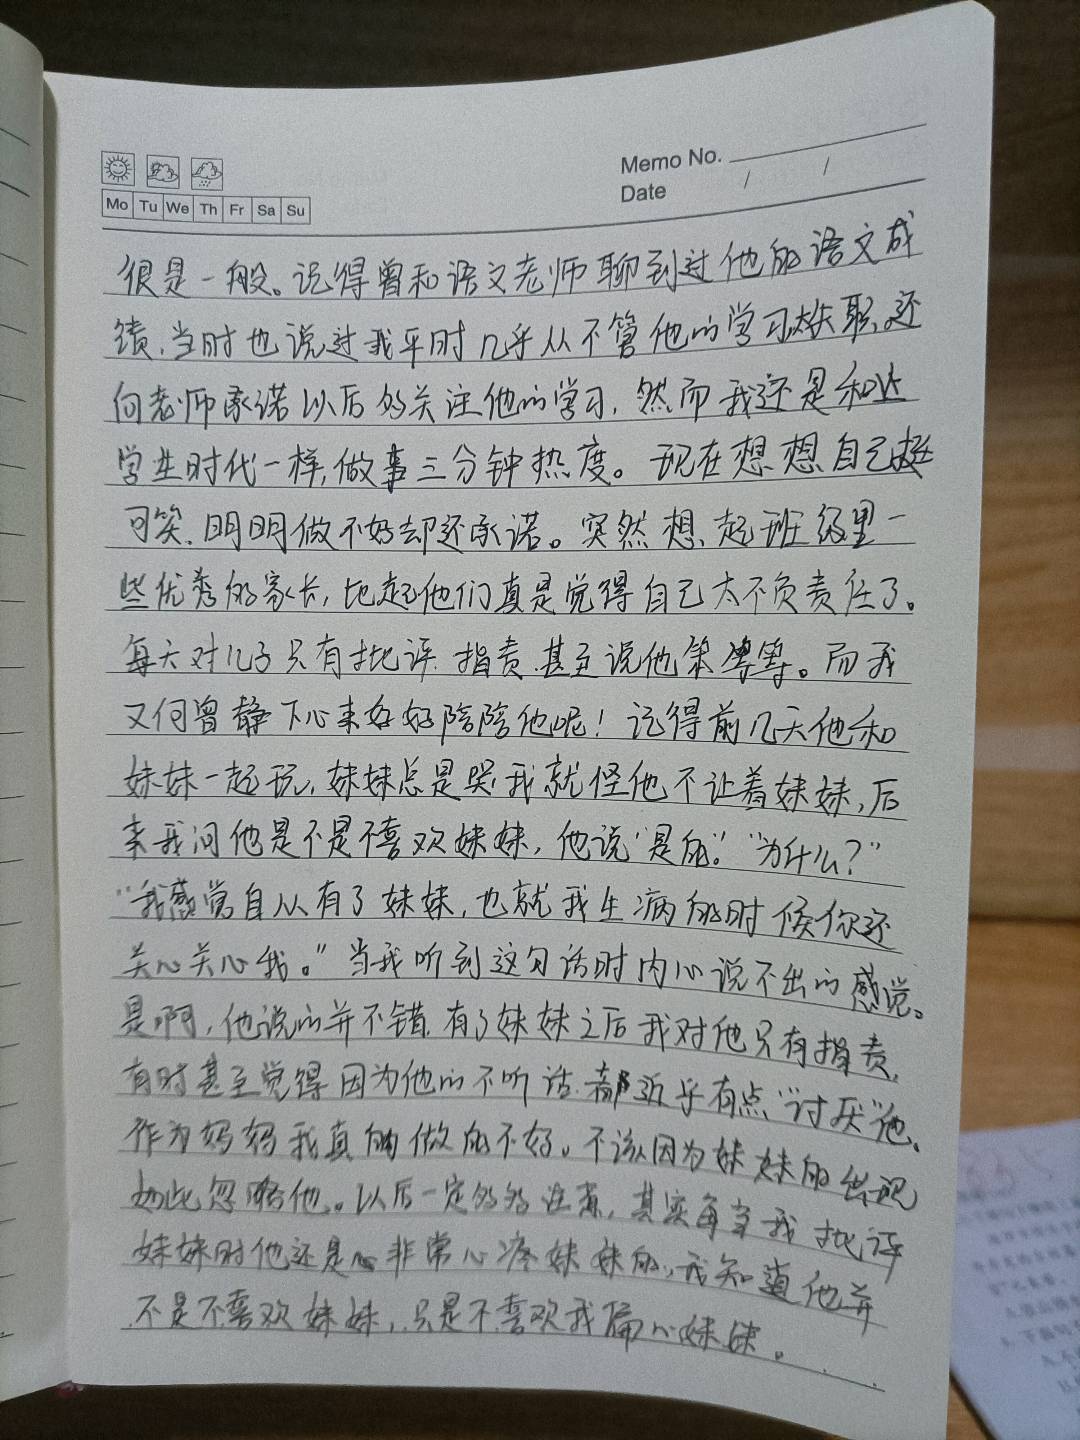 Memo No.
Date / /
Mo Tu We Th Fr Sa Su
很是一般。记得曾和语文老师聊到过他的语文成
绩,当时也说过我平时几乎从不管他的学习太失职,还
向老师承诺以后多关注他的学习,然而我还是和
学生时代一样,做事三分钟热度。现在想想自己挺
可笑,明明做不好却还承诺。突然想起班级里一
些优秀的家长,比起他们真是觉得自己太不负责任了。
每天对儿子只有批评、指责、甚至说他笨等等。而我
又何曾静下心来好好陪陪他呢!记得前几天他和
妹妹一起玩,妹妹总是哭,我就怪他不让着妹妹,后
来我问他是不是不喜欢妹妹,他说“是的。”“为什么?”
“我感觉自从有了妹妹,也就我生病的时候你还
关心关心我。”当我听到这句话时内心说不出的感觉。
是啊,他说的并不错,有了妹妹之后我对他只有指责,
有时甚至觉得因为他的不听话,都近乎有点“讨厌”他、
作为妈妈我真的做的不好。不该因为妹妹的出现
如此忽略他。以后一定多多注意,其实每当我批评
妹妹时他还是非常心疼妹妹的,我知道他并
不是不喜欢妹妹,只是不喜欢我偏心妹妹。